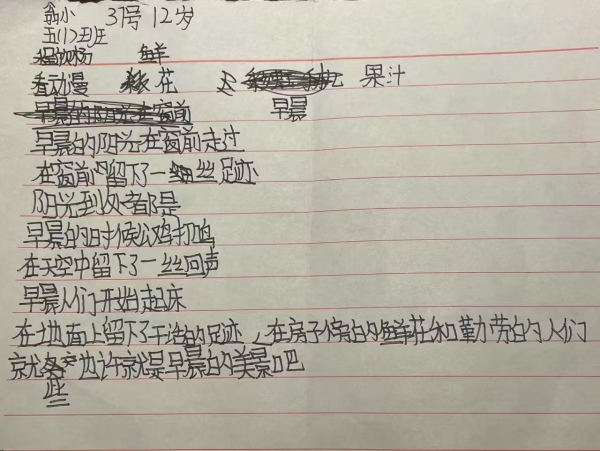 翁小 31号 12岁
五(2)班
鲜
看动漫 花 果汁
早晨的阳光在窗前 早晨
早晨的阳光在窗前走过
在窗前留下了一丝足迹
阳光到处都是
早晨的时候公鸡打鸣
在天空中留下了一丝回声
早晨人们开始起床
在地面上留下了干活的足迹 在房子傍的鲜花和勤劳的人们
就 也许就是早晨的美景吧
些